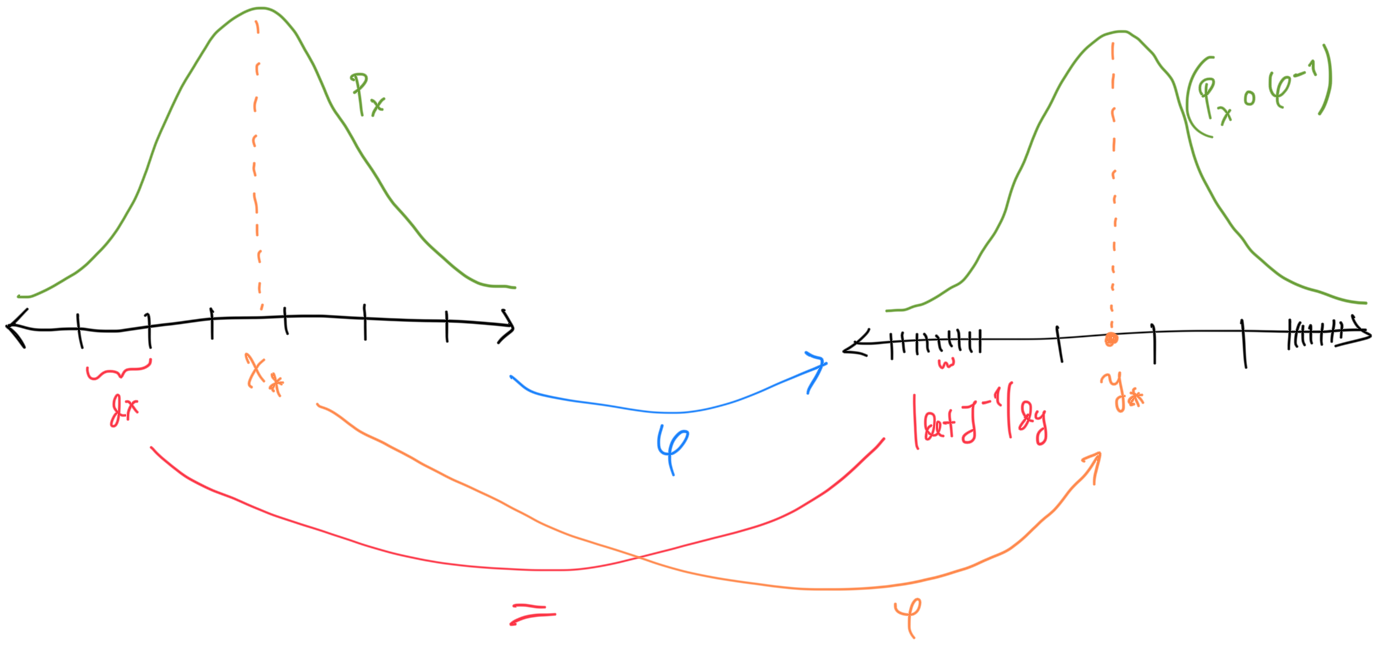 pₓ
(pₓ ∘ φ⁻¹)
dx
x⋆
φ
|det J⁻¹| dy
y⋆
=
φ